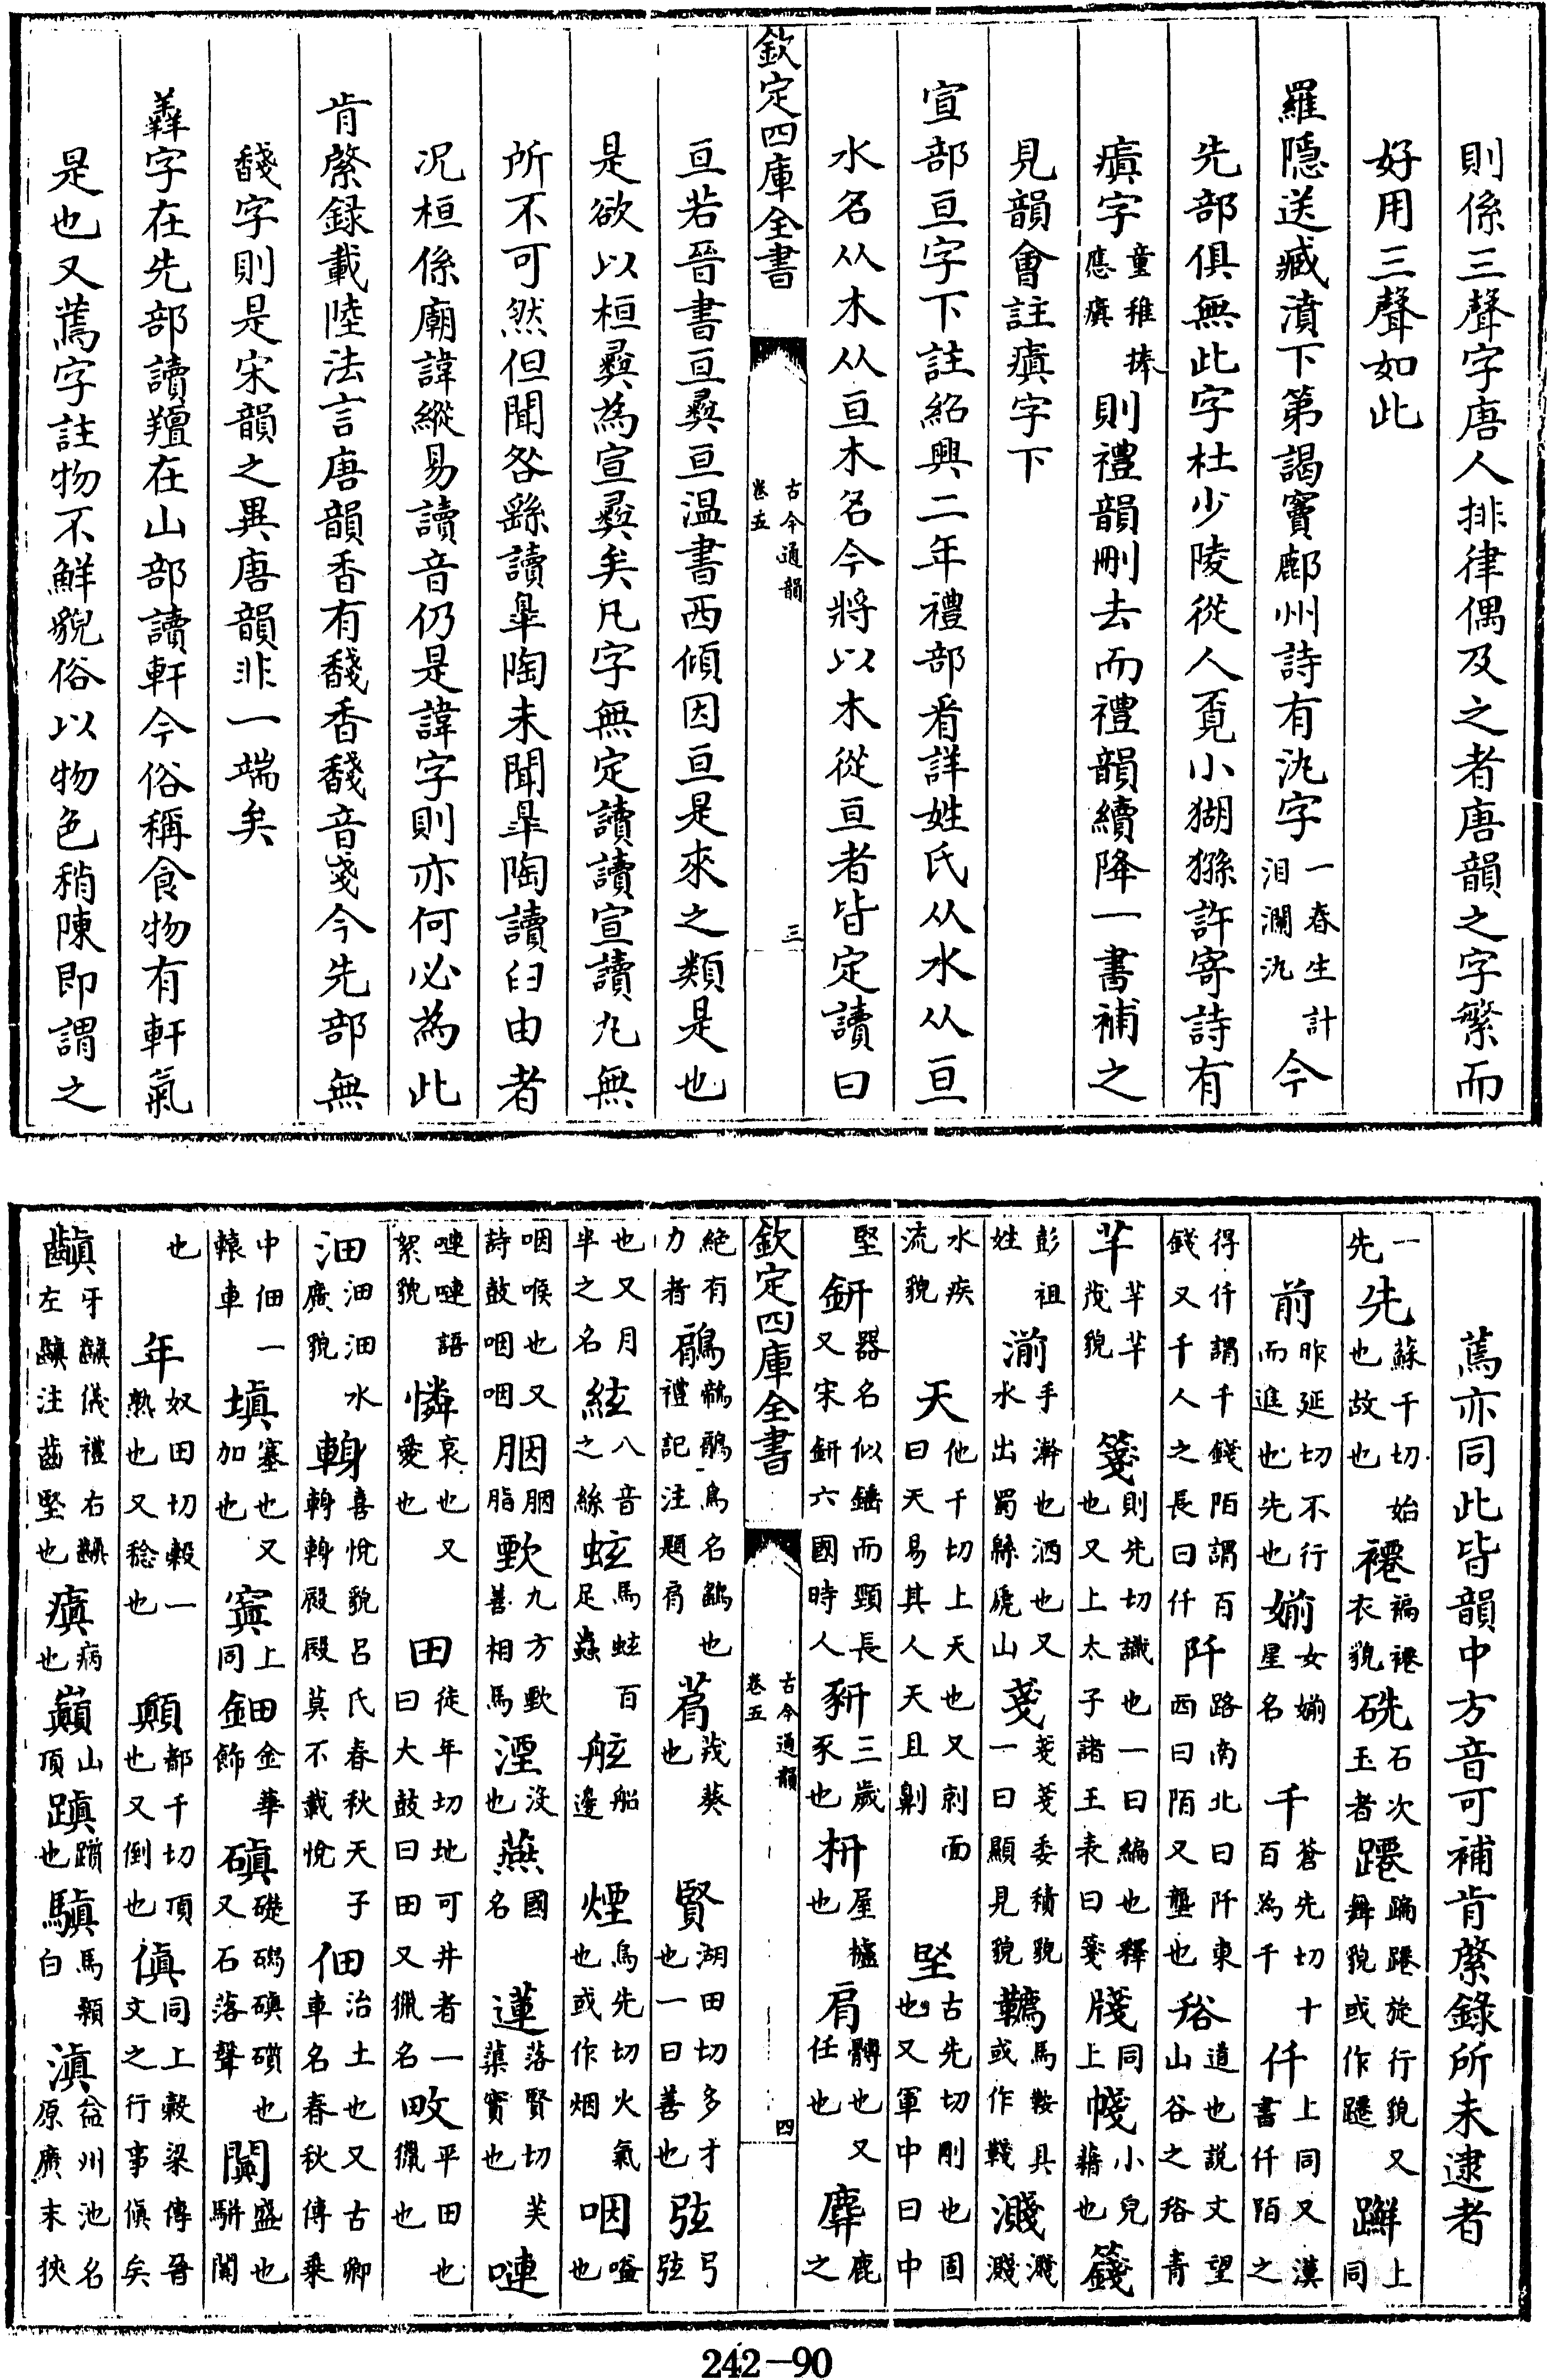 則係三聲字唐人排律偶及之者唐韻之字繁而
好用三聲如此
羅隱送臧濆下第謁竇鄜州詩有氿字一春生計泪瀾氿今
先部俱無此字杜少陵從人覔小猢猻許寄詩有
瘨字童稚捧應瘨則禮韻刪去而禮韻續降一書補之
見韻會註瘨字下
宣部亘字下註紹興二年禮部看詳姓氏从水从亘
水名从木从亘木名今將以木從亘者皆定讀曰
欽定四庫全書
古今通韻
卷五
三
亘若晉書亘彛亘温書西傾因亘是來之類是也
是欲以桓彛為宣彛矣凡字無定讀讀宣讀丸無
所不可然但聞咎繇讀臯陶未聞臯陶讀臼由者
况桓係廟諱縱易讀音仍是諱字則亦何必為此
肯綮録載陸法言唐韻香有馢香馢音戔今先部無
馢字則是宋韻之異唐韻非一端矣
羴字在先部讀羶在山部讀軒今俗稱食物有軒氣
是也又蔫字註物不鮮貌俗以物色稍陳即謂之
蔫亦同此皆韻中方音可補肯綮錄所未逮者
一先先蘇千切始也故也褼褊褼衣貌硗石次玉者蹮蹁蹮旋行貌又舞貌或作躚躃上同
前昨延切不行而進也先也媊女媊星名千蒼先切十百為千仟上同又漢書仟陌之
得仟謂千錢陌謂百錢又千人之長曰仟阡路南北曰阡東西曰陌又壟也谸道也説文望山谷之谸青
芊芊芊茂貌箋則先切識也一曰編也釋也又上太子諸王表曰箋牋上同帴小兒藉也籛
彭祖姓湔手澣也洒也又水出蜀緜虒山戔戔戔委積貌一曰顯見貌韉馬鞍具或作韀濺濺濺
水疾流貌天他千切上天也又剠面曰天易其人天且劓堅古先切剛也固也又軍中曰中
堅鈃器名似鍾而頸長又宋鈃六國時人豜三歲豕也枅屋櫨也肩髆也又任也麉鹿之
欽定四庫全書
古今通韻
卷五
四
絶有力者鵳鶺鵳鳥名鷂也禮記注題肩菺茂葵也賢湖田切多才也一曰善也弦弓弦
也又月半之名絃八音之絲絃蚿馬蚿百足蟲舷船邊煙烏先切火氣也或作烟咽嗌也
咽喉也又詩鼓咽咽胭胭脂歅九方歅善相馬湮沒也燕國名蓮落賢切芙蕖實也嗹
嗹嗹語絮貌憐哀也又愛也田徒年切地可井者一曰大鼓曰田又獵名畋平田也獵也
沺沺沺水廣貌䡩喜悅貌吕氏春秋天子䡩䡩殿殿莫不載悅佃治土也又古卿車名春秋傳乘
中佃一轅車塡塞也又加也窴上同鈿金華飾磌礎磶磌礩也又石落聲闐盛也駢闐
也年奴田切穀一熟也又稔也顚都千切頂也又倒也傎同上穀梁傳晉文之行事傎矣
齻牙齻儀禮右齻左齻注齒堅也瘨病也巓山頂蹎蹟也驥馬顙白滇益州池名原廣末狹
242-90